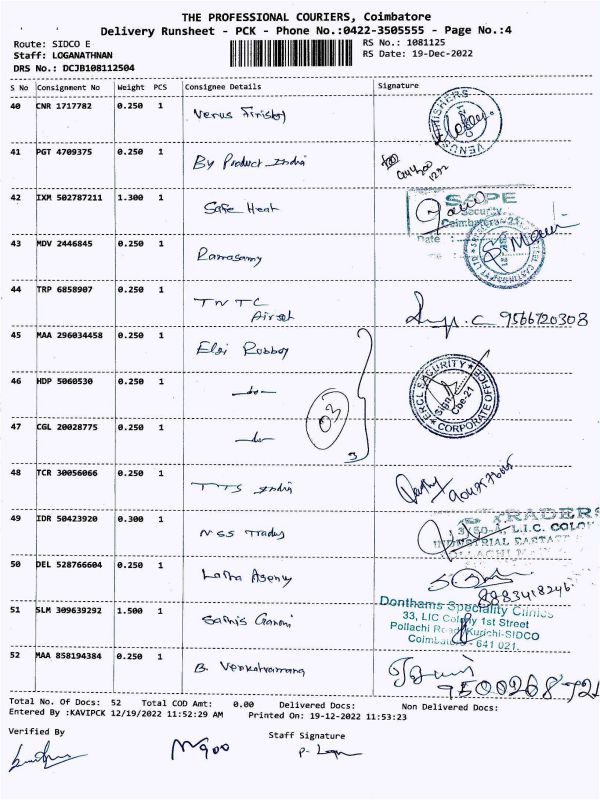 THE PROFESSIONAL COURIERS, Coimbatore
Delivery Runsheet - PCK - Phone No.:0422-3505555 - Page No.:4
Route: SIDCO E
RS No.: 1081125
Staff: LOGANATHNAN
RS Date: 19-Dec-2022
DRS No.: DCJB108112504
S No Consignment No Weight PCS Consignee Details Signature
40 CNR 1717782 0.250 1
41 PGT 4709375 0.250 1 By Product India
42 IXM 502787211 1.300 1 Safe Heat
Security
Coimbatore-21
Date :
43 MDV 2446845 0.250 1 Ramasamy
44 TRP 6858907 0.250 1 TNTC
9566720308
45 MAA 296034458 0.250 1 Elgi
46 HDP 5060530 0.250 1 -do-
SECURITY
Sign
Cbe-21
CORPORATE OFFICE
03
47 CGL 20028775 0.250 1 -do-
3
48 TCR 30056066 0.250 1 TTS India
49 IDR 50423920 0.300 1 NSS
TRADERS
L.I.C. COLO
50 DEL 528766604 0.250 1
8883418246
51 SLM 309639292 1.500 1
Donthams Speciality Clinics
33, LIC Colony 1st Street
Pollachi Road, Kurichi-SIDCO
Coimbatore - 641 021.
52 MAA 858194384 0.250 1 B. Venkatramana
Total No. Of Docs: 52 Total COD Amt: 0.00 Delivered Docs: Non Delivered Docs:
Entered By :KAVIPCK 12/19/2022 11:52:29 AM Printed On: 19-12-2022 11:53:23
Verified By
Staff Signature